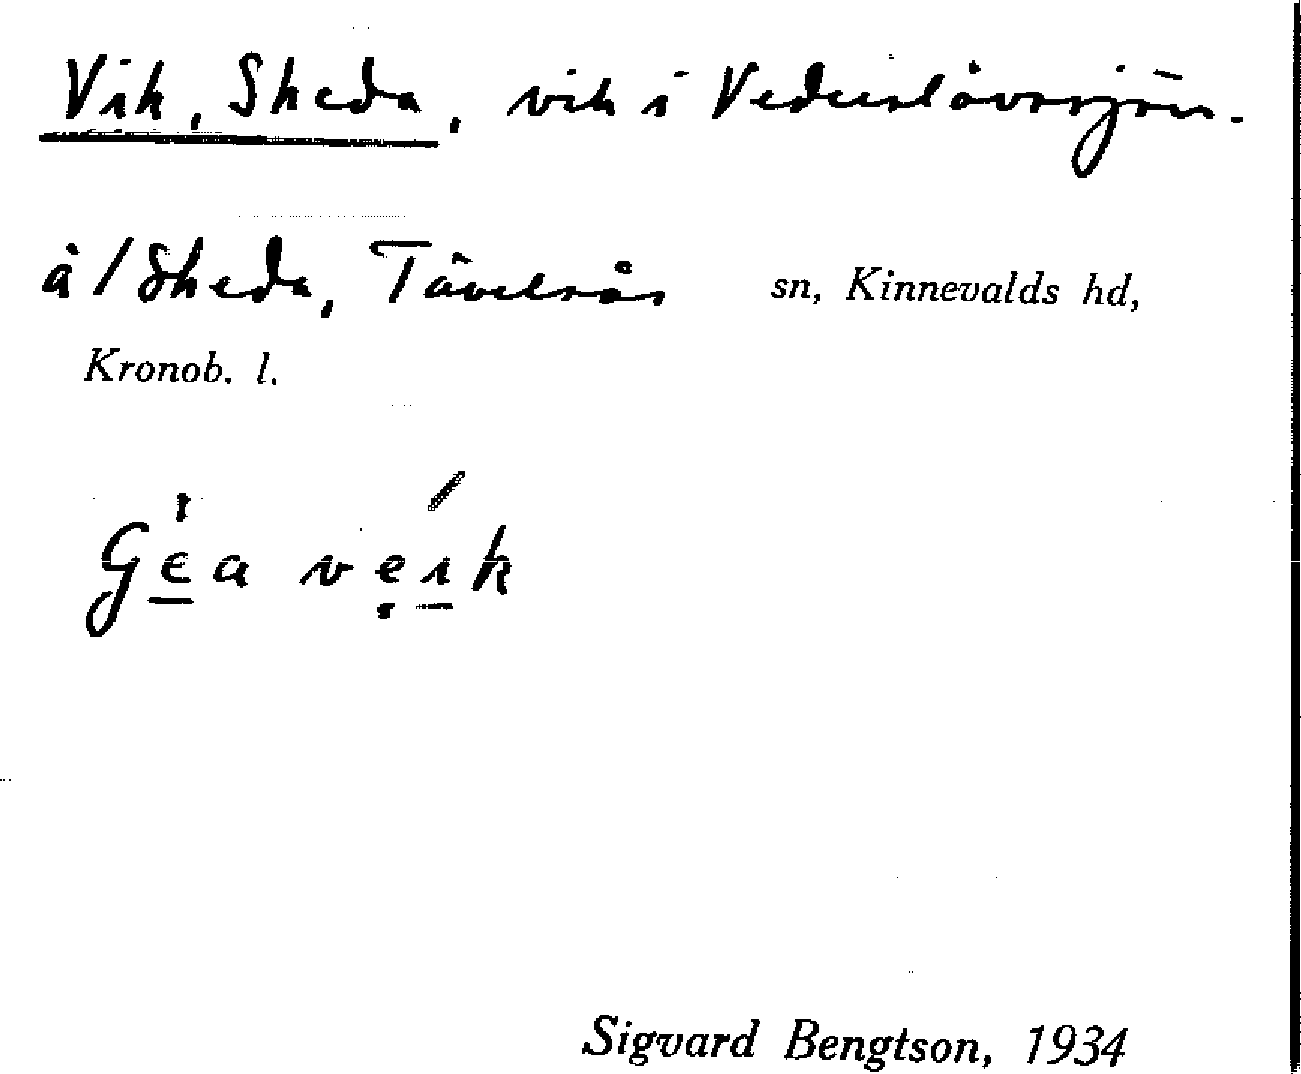 Vik, Skeda, vik i Vederslövssjön.
å/Skeda, Tävelsås sn, Kinnevalds hd,
Kronob. l.
Sigvard Bengtson, 1934